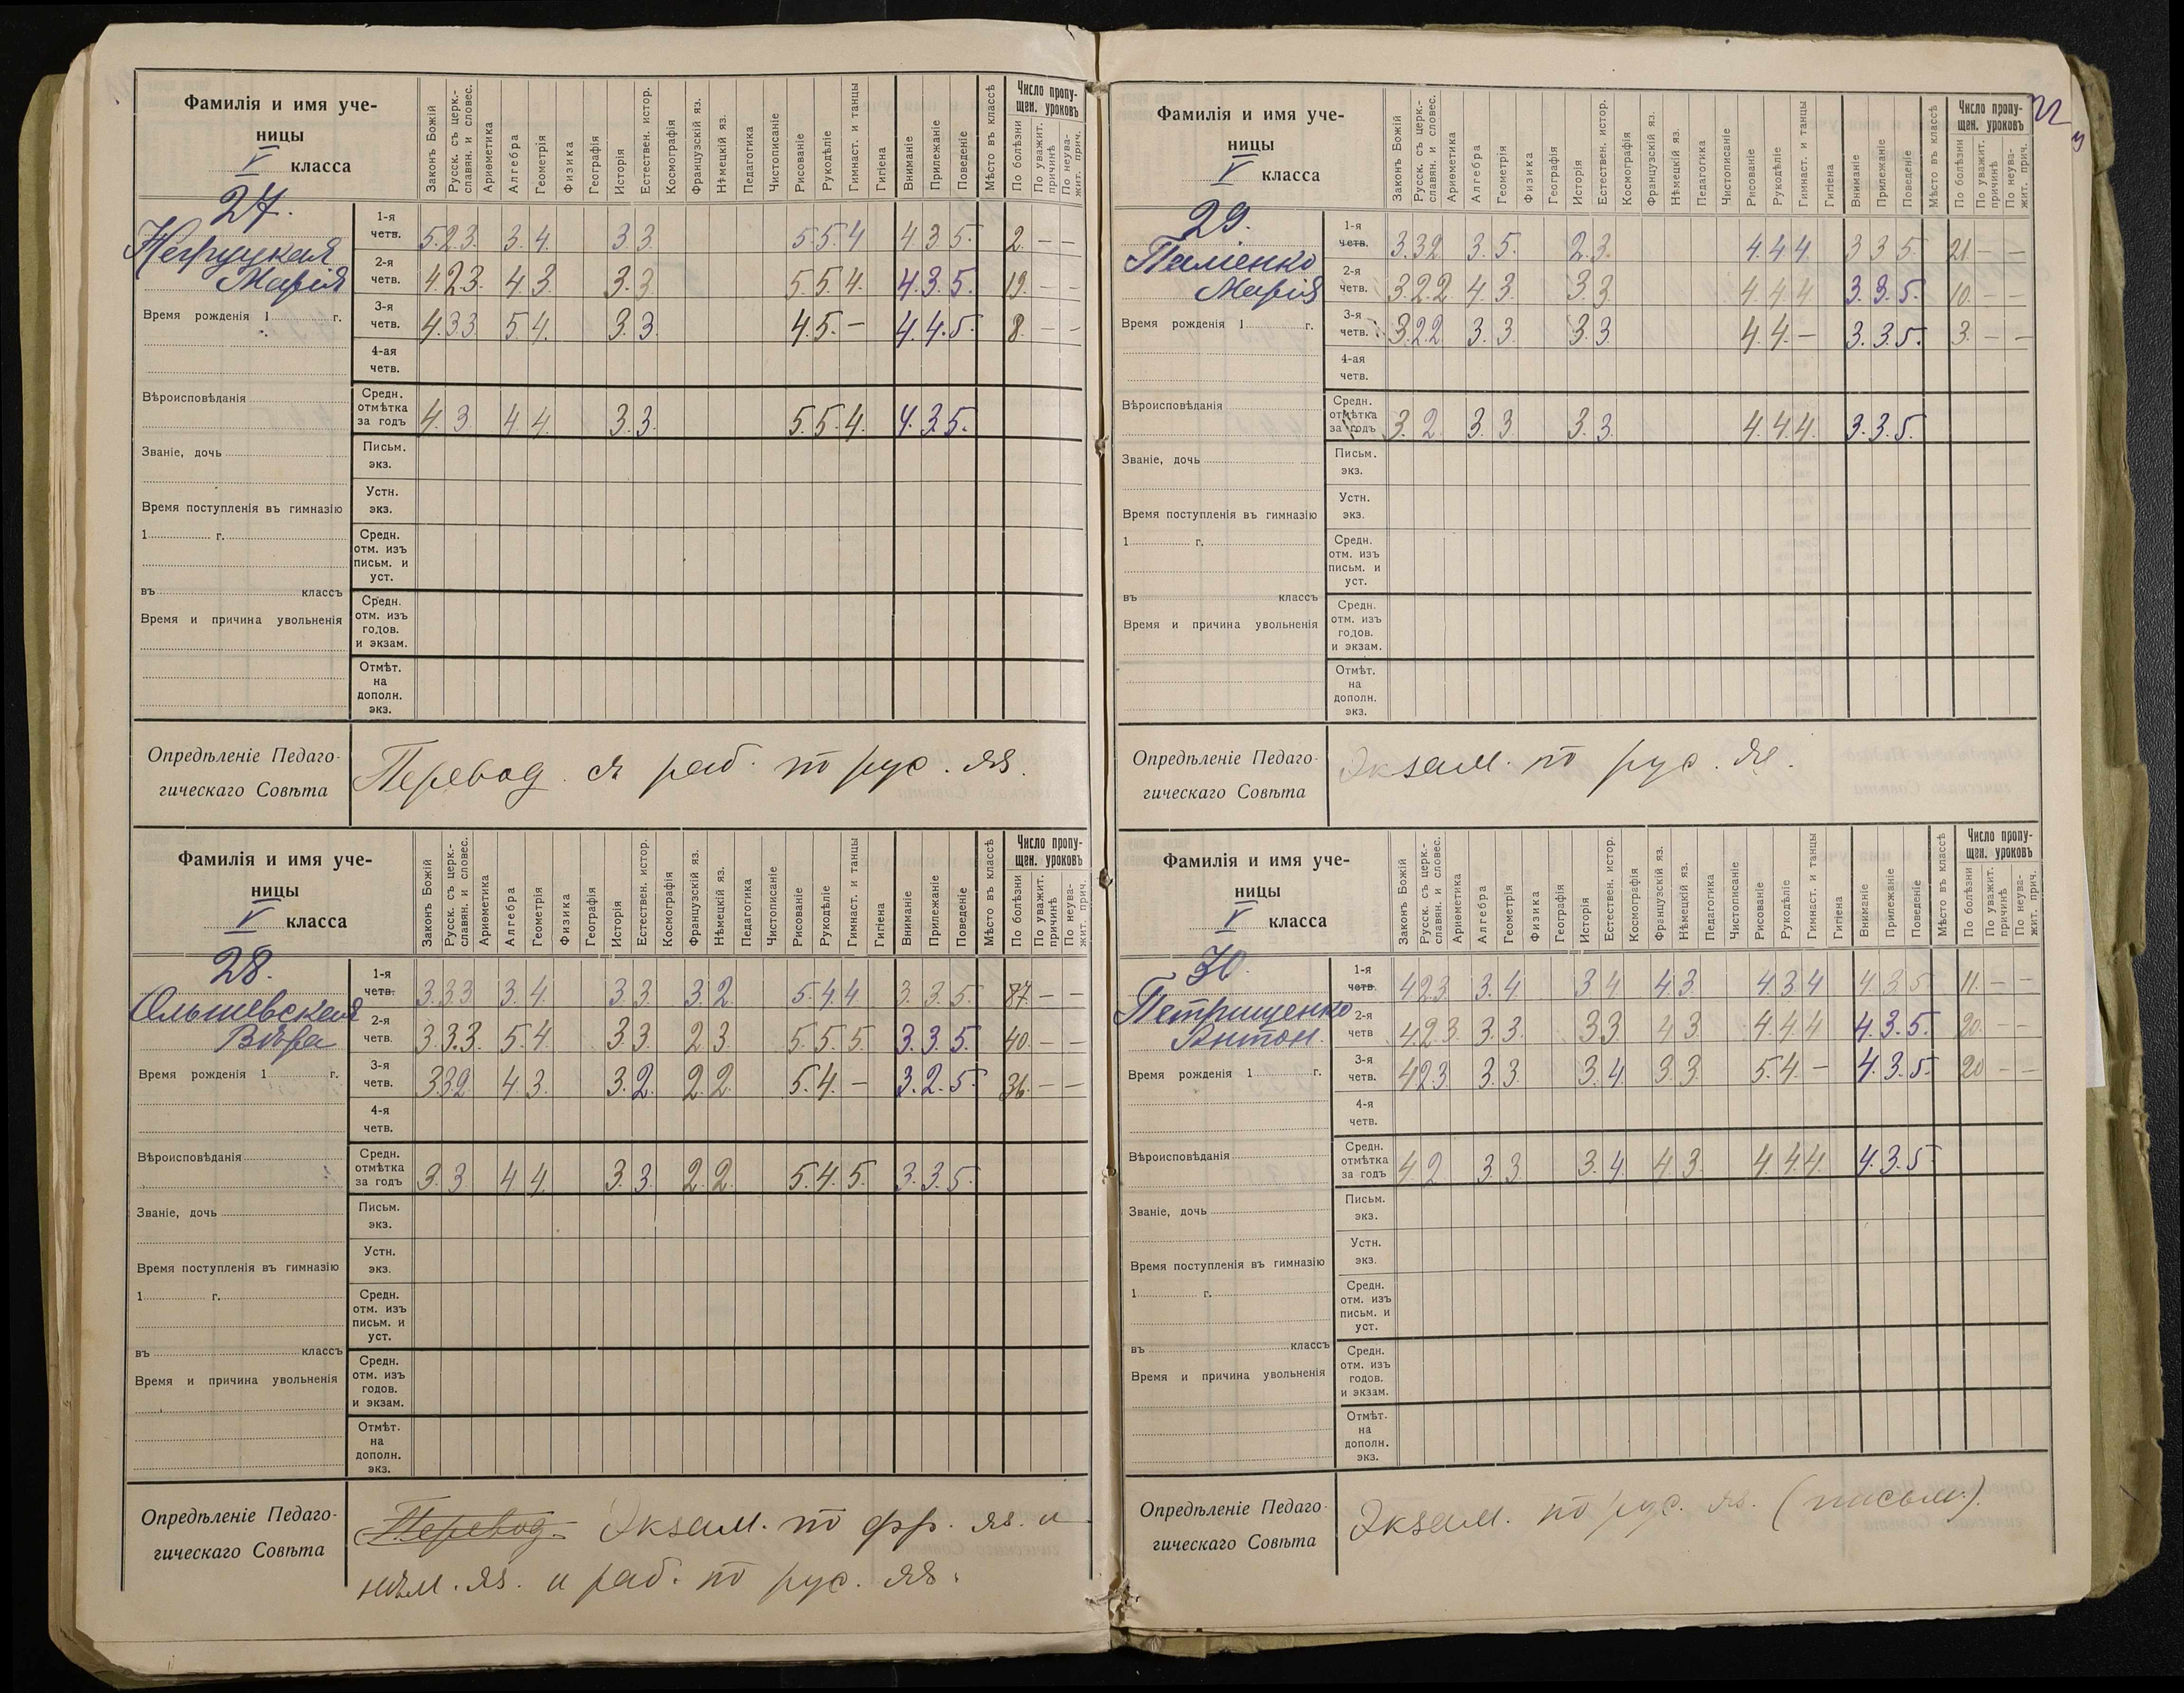 Фамилія и имя уче-
ницы
V класса
Законъ Божій
Русск. съ церк.-
славян. и словес.
Ариѳметика
Алгебра
Геометрія
Физика
Географія
Исторія
Естествен. истор.
Космографія
Французскій яз.
Нѣмецкій яз.
Педагогика
Чистописаніе
Рисованіе
Рукодѣліе
Гимнаст. и танцы
Гигіена
Вниманіе
Прилежаніе
Поведеніе
Мѣсто въ классѣ
Число пропу-
щен. уроковъ
По болѣзни
По уважит.
причинѣ
По неува-
жит. прич.
27.
Марія
1-я
четв. 5. 2. 3. 3. 4. 3 3. 5 5. 4 4 3 5. 2. — —
2-я
четв. 4. 2 3. 4 3. 3. 3 5 5. 4. 4. 3. 5. 19. — —
3-я
четв. 4. 3 3. 5 4. 3. 3. 4. 5. — 4. 4. 5. 8. — —
Время рожденія 1 г.
4-ая
четв.
Вѣроисповѣданія
Средн.
отмѣтка
за годъ 4. 3 4 4. 3 3. 5. 5. 4. 4. 3. 5.
Званіе, дочь
Письм.
экз.
Время поступленія въ гимназію
Устн.
экз.
1 г.
Средн.
отм. изъ
письм. и
уст.
въ классъ
Время и причина увольненія
Средн.
отм. изъ
годов.
и экзам.
Отмѣт.
на
дополн.
экз.
Опредѣленіе Педаго-
гическаго Совѣта
Перевод. с раб. по рус. яз.
Фамилія и имя уче-
ницы
V класса
Законъ Божій
Русск. съ церк.-
славян. и словес.
Ариѳметика
Алгебра
Геометрія
Физика
Географія
Исторія
Естествен. истор.
Космографія
Французскій яз.
Нѣмецкій яз.
Педагогика
Чистописаніе
Рисованіе
Рукодѣліе
Гимнаст. и танцы
Гигіена
Вниманіе
Прилежаніе
Поведеніе
Мѣсто въ классѣ
Число пропу-
щен. уроковъ
По болѣзни
По уважит.
причинѣ
По неува-
жит. прич.
28.
Ольшевская
Вѣра
1-я
четв. 3. 3 3 3. 4. 3 3. 3. 2. 5. 4. 4 3. 3. 5. 87. — —
2-я
четв. 3. 3. 3. 5. 4. 3 3. 2 3 5. 5. 5. 3. 3. 5. 40. — —
3-я
четв. 3 3 2. 4 3. 3. 2. 2 2. 5. 4. — 3. 2. 5. 36. — —
Время рожденія 1 г.
4-я
четв.
Вѣроисповѣданія
Средн.
отмѣтка
за годъ 3. 3 4 4. 3. 3. 2. 2. 5. 4. 5. 3. 3. 5.
Званіе, дочь
Письм.
экз.
Время поступленія въ гимназію
Устн.
экз.
1 г.
Средн.
отм. изъ
письм. и
уст.
въ классъ
Время и причина увольненія
Средн.
отм. изъ
годов.
и экзам.
Отмѣт.
на
дополн.
экз.
Опредѣленіе Педаго-
гическаго Совѣта
Перевод. Экзам. по фр. яз. и
нѣм. яз. и раб. по рус. яз.
22
Фамилія и имя уче-
ницы
V класса
Законъ Божій
Русск. съ церк.-
славян. и словес.
Ариѳметика
Алгебра
Геометрія
Физика
Географія
Исторія
Естествен. истор.
Космографія
Французскій яз.
Нѣмецкій яз.
Педагогика
Чистописаніе
Рисованіе
Рукодѣліе
Гимнаст. и танцы
Гигіена
Вниманіе
Прилежаніе
Поведеніе
Мѣсто въ классѣ
Число пропу-
щен. уроковъ
По болѣзни
По уважит.
причинѣ
По неува-
жит. прич.
29.
Марія
1-я
четв. 3. 3 2 3. 5. 2. 3. 4. 4 4 3 3 5. 21. — —
2-я
четв. 3. 2. 2 4 3. 3 3. 4. 4 4 3. 3. 5. 10. — —
3-я
четв. 3. 2 2. 3. 3. 3 3. 4. 4. — 3. 3. 5. 3. — —
Время рожденія 1 г.
4-ая
четв.
Вѣроисповѣданія
Средн.
отмѣтка
за годъ 3. 2. 3. 3. 3. 3. 4. 4. 4. 3. 3. 5.
Званіе, дочь
Письм.
экз.
Время поступленія въ гимназію
Устн.
экз.
1 г.
Средн.
отм. изъ
письм. и
уст.
въ классъ
Время и причина увольненія
Средн.
отм. изъ
годов.
и экзам.
Отмѣт.
на
дополн.
экз.
Опредѣленіе Педаго-
гическаго Совѣта
Экзам. по рус. яз.
Фамилія и имя уче-
ницы
V класса
Законъ Божій
Русск. съ церк.-
славян. и словес.
Ариѳметика
Алгебра
Геометрія
Физика
Географія
Исторія
Естествен. истор.
Космографія
Французскій яз.
Нѣмецкій яз.
Педагогика
Чистописаніе
Рисованіе
Рукодѣліе
Гимнаст. и танцы
Гигіена
Вниманіе
Прилежаніе
Поведеніе
Мѣсто въ классѣ
Число пропу-
щен. уроковъ
По болѣзни
По уважит.
причинѣ
По неува-
жит. прич.
30.
Петрищенко
Антон.
1-я
четв. 4 2 3 3. 4. 3 4 4 3 4. 3 4 4. 3 5 11. — —
2-я
четв 4 2 3 3 3. 3 3 4 3 4. 4 4 4. 3. 5. 20. — —
3-я
четв. 4 2 3 3 3. 3. 4. 3 3. 5. 4. — 4. 3. 5. 20 — —
Время рожденія 1 г.
4-я
четв.
Вѣроисповѣданія
Средн.
отмѣтка
за годъ 4. 2. 3 3. 3. 4. 4 3. 4. 4. 4. 4. 3. 5
Званіе, дочь
Письм.
экз.
Время поступленія въ гимназію
Устн.
экз.
1 г.
Средн.
отм. изъ
письм. и
уст.
въ классъ
Время и причина увольненія
Средн.
отм. изъ
годов.
и экзам.
Отмѣт.
на
дополн.
экз.
Опредѣленіе Педаго-
гическаго Совѣта
Экзам. по рус. яз. (письм.).